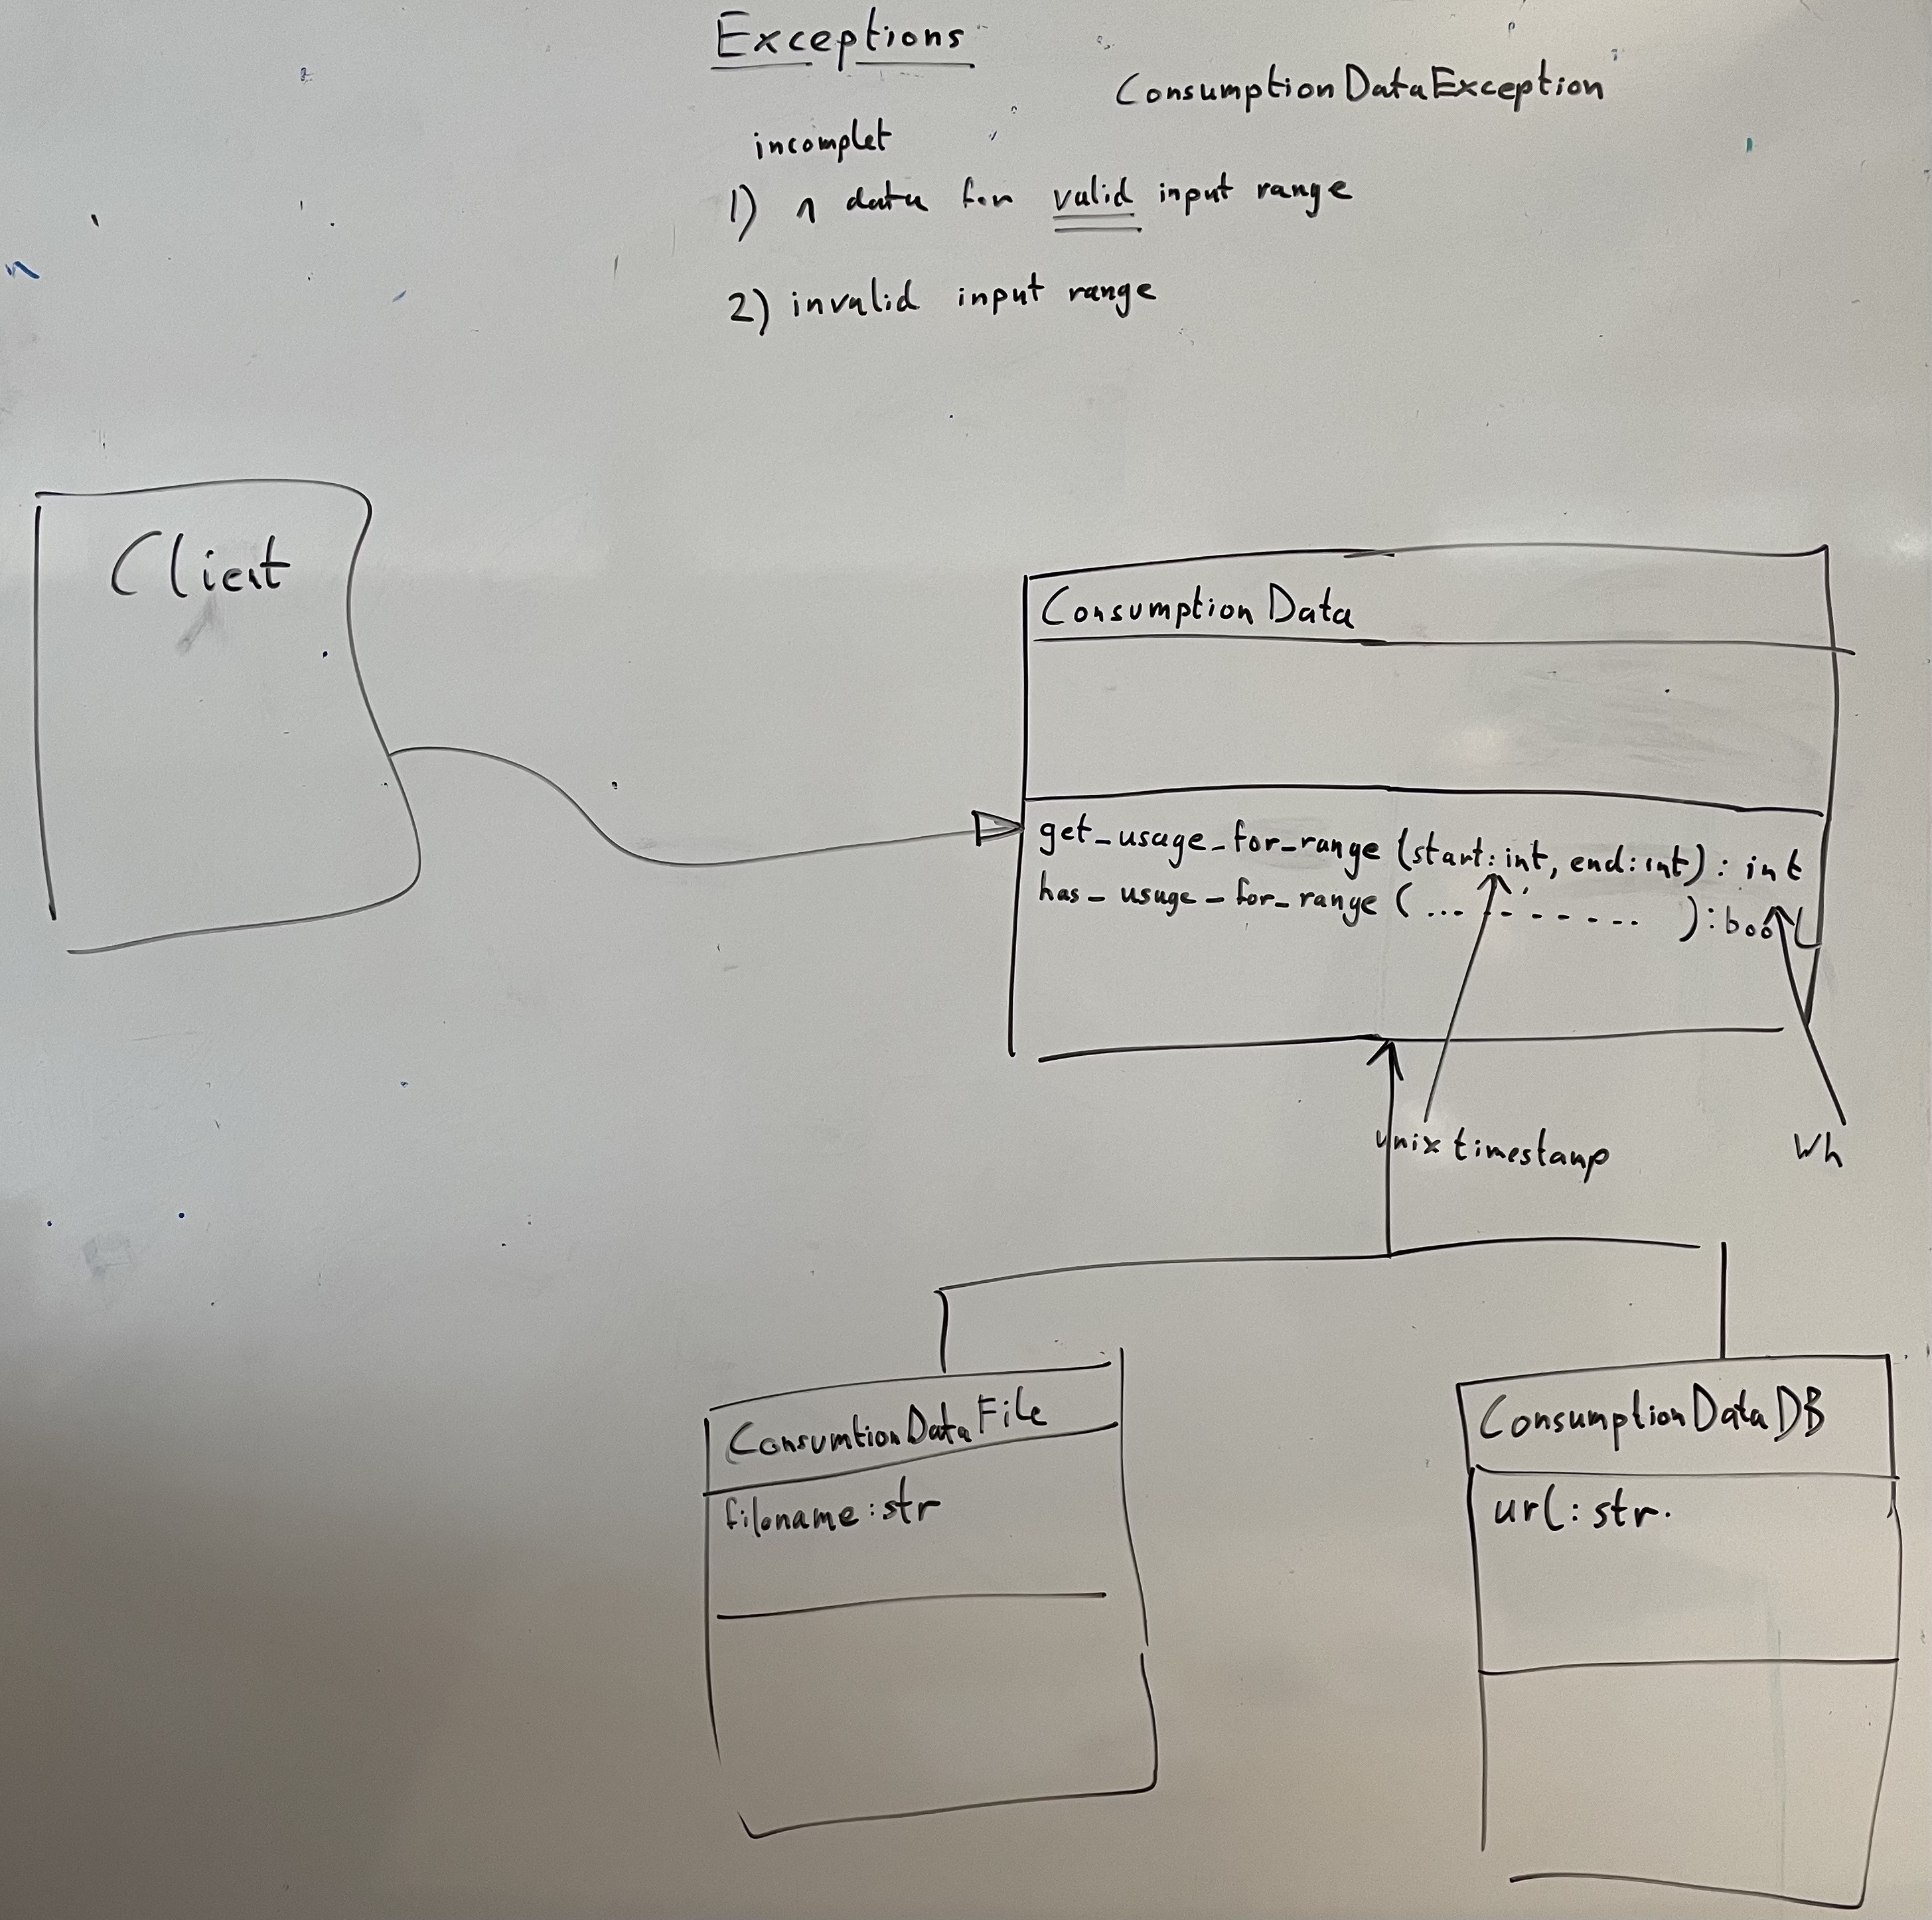 Exceptions
ConsumptionDataException
incomplet
1) ∧ data for valid input range
2) invalid input range
Client
ConsumptionData
get_usage_for_range (start:int, end:int): int
has_usage_for_range (... - - - - - - ..):bool
unix timestamp
Wh
ConsumtionDataFile
filename:str
ConsumptionDataDB
url: str.